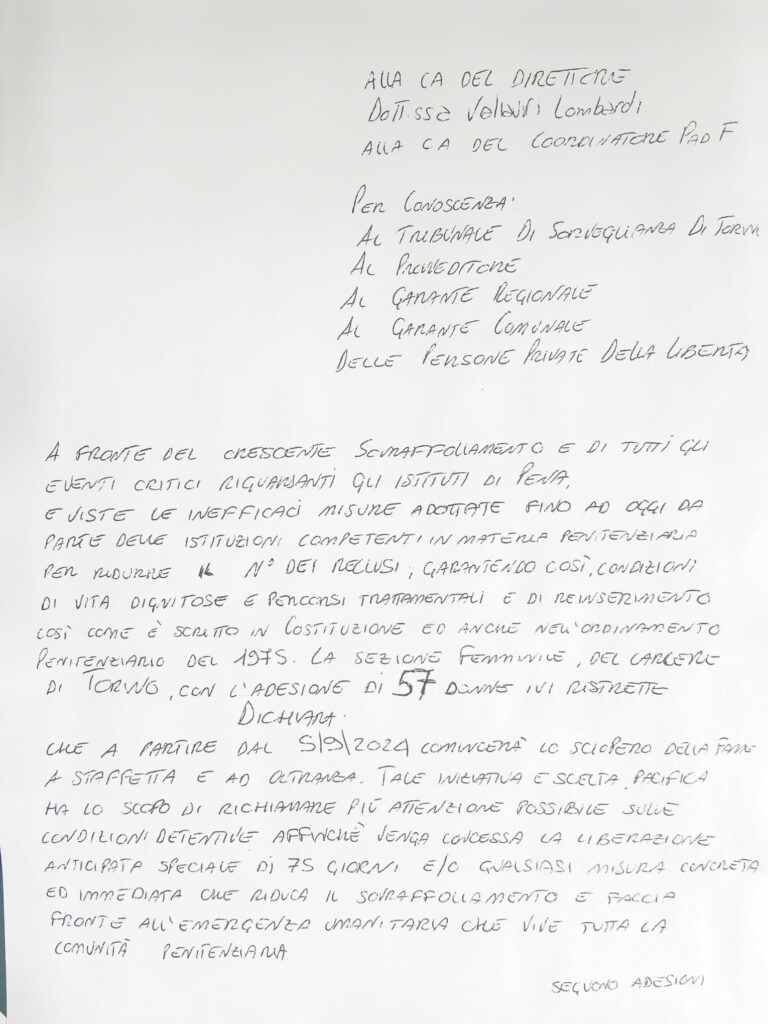 ALLA CA DEL DIRETTORE
Dott.ssa Lombardi
ALLA CA DEL COORDINATORE PAD F
PER CONOSCENZA:
AL TRIBUNALE DI SORVEGLIANZA DI TORINO
AL PROVVEDITORE
AL GARANTE REGIONALE
AL GARANTE COMUNALE
DELLE PERSONE PRIVATE DELLA LIBERTÀ
A FRONTE DEL CRESCENTE SOVRAFFOLLAMENTO E DI TUTTI GLI
EVENTI CRITICI RIGUARDANTI GLI ISTITUTI DI PENA,
E VISTE LE INEFFICACI MISURE ADOTTATE FINO AD OGGI DA
PARTE DELLE ISTITUZIONI COMPETENTI IN MATERIA PENITENZIARIA
PER RIDURRE IL N° DEI RECLUSI, GARANTENDO COSÌ, CONDIZIONI
DI VITA DIGNITOSE E PERCORSI TRATTAMENTALI E DI REINSERIMENTO
COSÌ COME È SCRITTO IN COSTITUZIONE ED ANCHE NELL'ORDINAMENTO
PENITENZIARIO DEL 1975. LA SEZIONE FEMMINILE, DEL CARCERE
DI TORINO, CON L'ADESIONE DI 57 DONNE IVI RISTRETTE
DICHIARA:
CHE A PARTIRE DAL 5/9/2024 COMINCERÀ LO SCIOPERO DELLA FAME
A STAFFETTA E AD OLTRANZA. TALE INIZIATIVA E SCELTA PACIFICA
HA LO SCOPO DI RICHIAMARE PIÙ ATTENZIONE POSSIBILE SULLE
CONDIZIONI DETENTIVE AFFINCHÈ VENGA CONCESSA LA LIBERAZIONE
ANTICIPATA SPECIALE DI 75 GIORNI E/O QUALSIASI MISURA CONCRETA
ED IMMEDIATA CHE RIDUCA IL SOVRAFFOLLAMENTO E FACCIA
FRONTE ALL'EMERGENZA UMANITARIA CHE VIVE TUTTA LA
COMUNITÀ PENITENZIARIA
SEGUONO ADESIONI